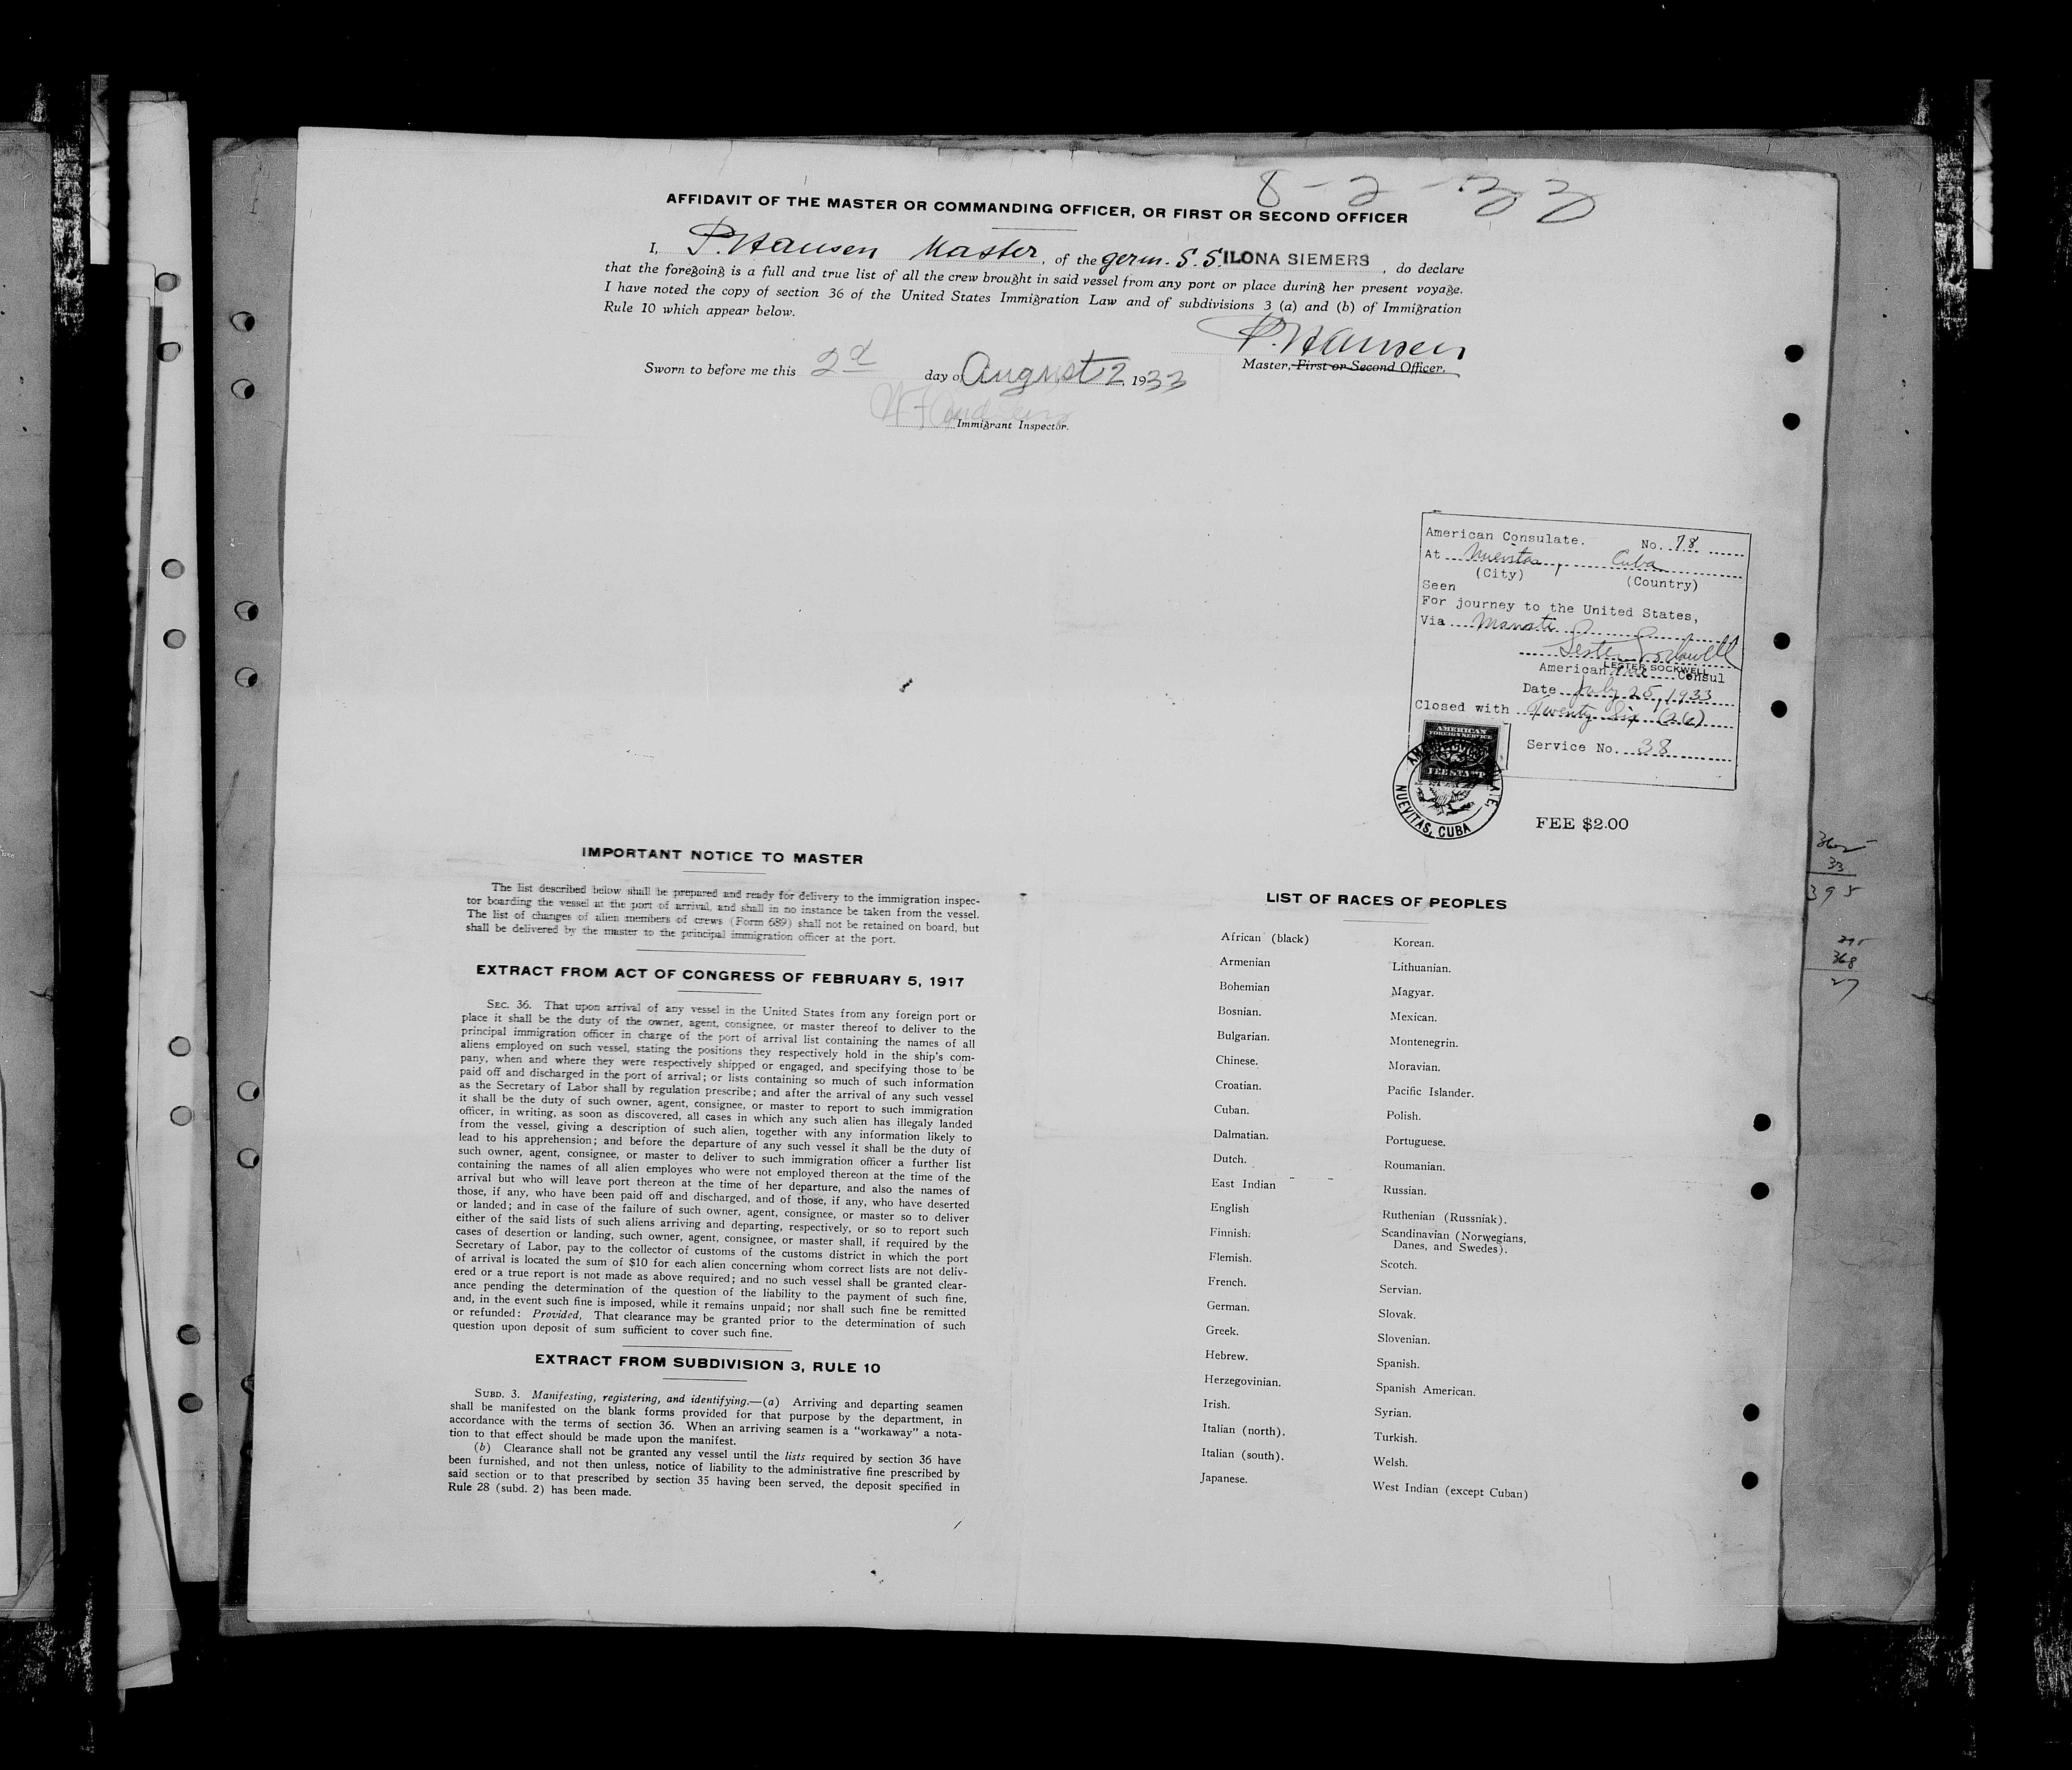 8-2-33
AFFIDAVIT OF THE MASTER OR COMMANDING OFFICER, OR FIRST OR SECOND OFFICER
I, P. Hansen Master, of the germ. S.S. ILONA SIEMERS, do declare
that the foregoing is a full and true list of all the crew brought in said vessel from any port or place during her present voyage.
I have noted the copy of section 36 of the United States Immigration Law and of subdivisions 3 (a) and (b) of Immigration
Rule 10 which appear below.
P. Hansen
Master, First or Second Officer.
Sworn to before me this 2d day of August 2, 1933
Immigrant Inspector.
American Consulate. No. 78
At Nuevitas, Cuba
(City) (Country)
Seen
For journey to the United States,
Via Manati
Lester Sockwell
LESTER SOCKWELL
American Consul
Date July 25, 1933
Closed with Twenty Six (26)
Service No. 38
AMERICAN
FOREIGN SERVICE
FEE STAMP
NUEVITAS, CUBA
FEE $2.00
IMPORTANT NOTICE TO MASTER
The list described below shall be prepared and ready for delivery to the immigration inspec-
tor boarding the vessel at the port of arrival, and shall in no instance be taken from the vessel.
The list of changes of alien members of crews (Form 689) shall not be retained on board, but
shall be delivered by the master to the principal immigration officer at the port.
EXTRACT FROM ACT OF CONGRESS OF FEBRUARY 5, 1917
SEC. 36. That upon arrival of any vessel in the United States from any foreign port or
place it shall be the duty of the owner, agent, consignee, or master thereof to deliver to the
principal immigration officer in charge of the port of arrival list containing the names of all
aliens employed on such vessel, stating the positions they respectively hold in the ship's com-
pany, when and where they were respectively shipped or engaged, and specifying those to be
paid off and discharged in the port of arrival; or lists containing so much of such information
as the Secretary of Labor shall by regulation prescribe; and after the arrival of any such vessel
it shall be the duty of such owner, agent, consignee, or master to report to such immigration
officer, in writing, as soon as discovered, all cases in which any such alien has illegaly landed
from the vessel, giving a description of such alien, together with any information likely to
lead to his apprehension; and before the departure of any such vessel it shall be the duty of
such owner, agent, consignee, or master to deliver to such immigration officer a further list
containing the names of all alien employes who were not employed thereon at the time of the
arrival but who will leave port thereon at the time of her departure, and also the names of
those, if any, who have been paid off and discharged, and of those, if any, who have deserted
or landed; and in case of the failure of such owner, agent, consignee, or master so to deliver
either of the said lists of such aliens arriving and departing, respectively, or so to report such
cases of desertion or landing, such owner, agent, consignee, or master shall, if required by the
Secretary of Labor, pay to the collector of customs of the customs district in which the port
of arrival is located the sum of $10 for each alien concerning whom correct lists are not deliv-
ered or a true report is not made as above required; and no such vessel shall be granted clear-
ance pending the determination of the question of the liability to the payment of such fine,
and, in the event such fine is imposed, while it remains unpaid; nor shall such fine be remitted
or refunded: Provided, That clearance may be granted prior to the determination of such
question upon deposit of sum sufficient to cover such fine.
EXTRACT FROM SUBDIVISION 3, RULE 10
SUBD. 3. Manifesting, registering, and identifying.—(a) Arriving and departing seamen
shall be manifested on the blank forms provided for that purpose by the department, in
accordance with the terms of section 36. When an arriving seamen is a "workaway" a nota-
tion to that effect should be made upon the manifest.
(b) Clearance shall not be granted any vessel until the lists required by section 36 have
been furnished, and not then unless, notice of liability to the administrative fine prescribed by
said section or to that prescribed by section 35 having been served, the deposit specified in
Rule 28 (subd. 2) has been made.
LIST OF RACES OF PEOPLES
African (black)
Armenian
Bohemian
Bosnian.
Bulgarian.
Chinese.
Croatian.
Cuban.
Dalmatian.
Dutch.
East Indian
English
Finnish.
Flemish.
French.
German.
Greek.
Hebrew.
Herzegovinian.
Irish.
Italian (north).
Italian (south).
Japanese.
Korean.
Lithuanian.
Magyar.
Mexican.
Montenegrin.
Moravian.
Pacific Islander.
Polish.
Portuguese.
Roumanian.
Russian.
Ruthenian (Russniak).
Scandinavian (Norwegians,
Danes, and Swedes).
Scotch.
Servian.
Slovak.
Slovenian.
Spanish.
Spanish American.
Syrian.
Turkish.
Welsh.
West Indian (except Cuban)
33
395
368
27